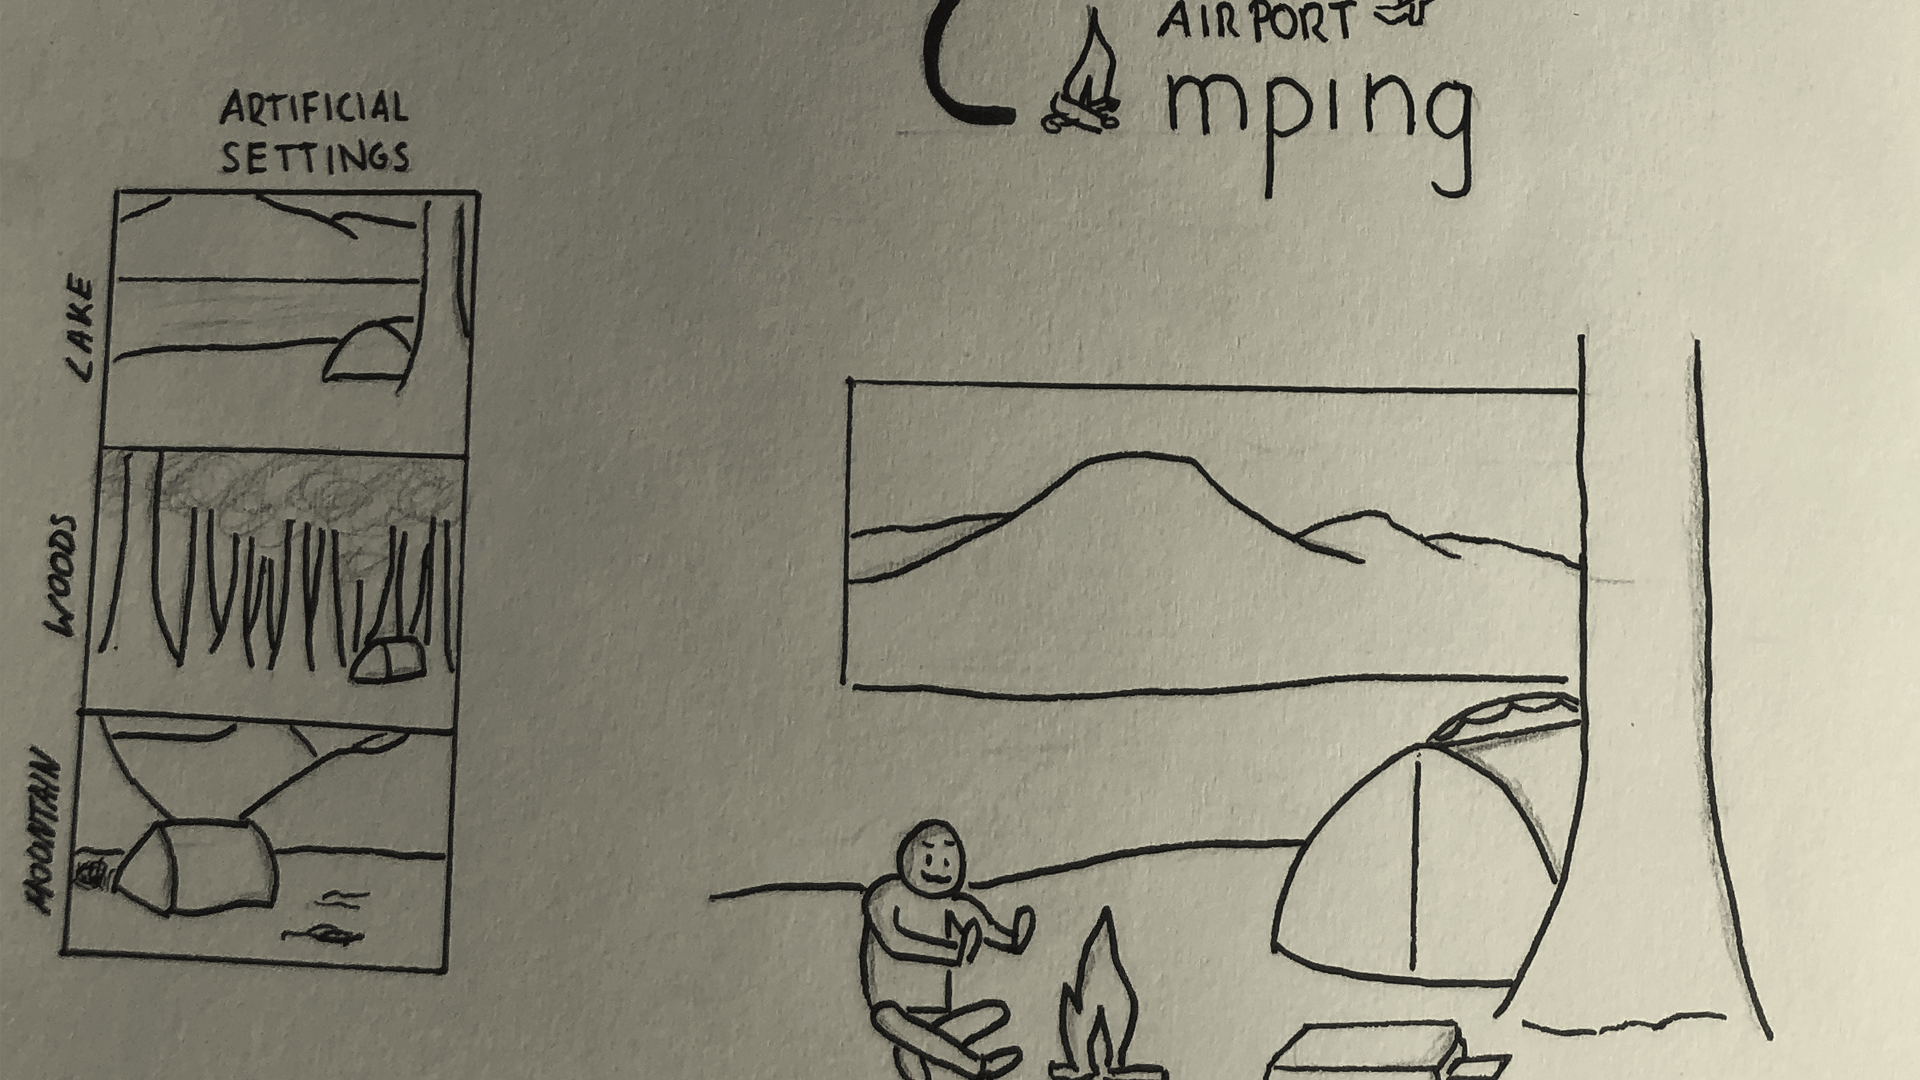 AIRPORT
Camping
ARTIFICIAL
SETTINGS
LAKE
WOODS
MOUNTAIN